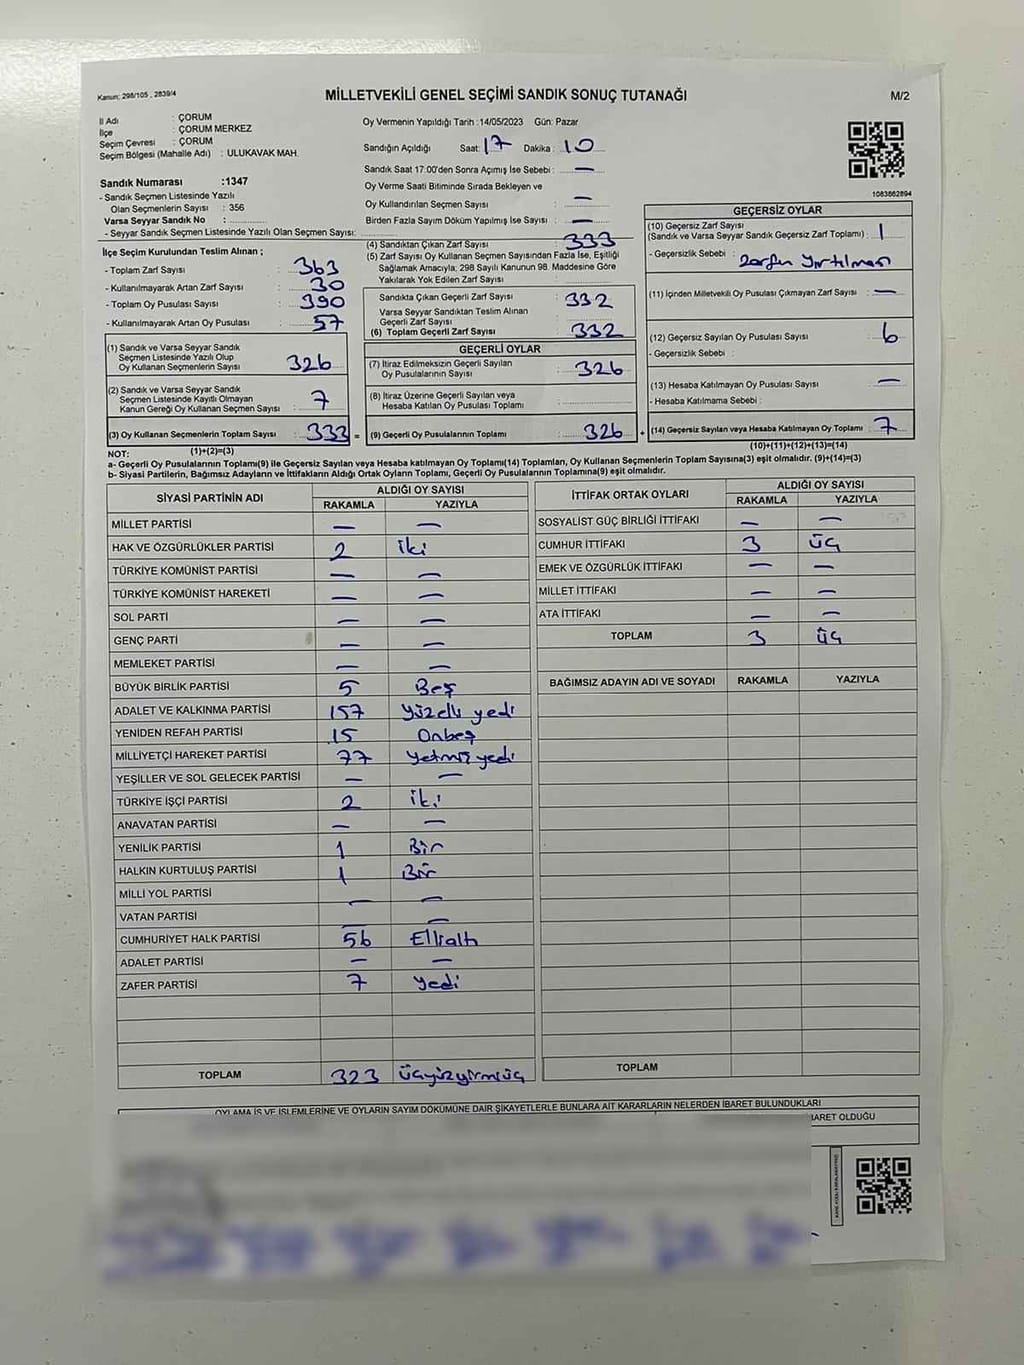 Kanun; 298/105 , 2839/4
MİLLETVEKİLİ GENEL SEÇİMİ SANDIK SONUÇ TUTANAĞI
M/2
İl Adı : ÇORUM
İlçe : ÇORUM MERKEZ
Seçim Çevresi : ÇORUM
Seçim Bölgesi (Mahalle Adı) : ULUKAVAK MAH.
Sandık Numarası :1347
- Sandık Seçmen Listesinde Yazılı
Olan Seçmenlerin Sayısı : 356
Varsa Seyyar Sandık No :
- Seyyar Sandık Seçmen Listesinde Yazılı Olan Seçmen Sayısı:
Oy Vermenin Yapıldığı Tarih :14/05/2023 Gün: Pazar
Sandığın Açıldığı Saat: 17 Dakika: 10
Sandık Saat 17:00'den Sonra Açımış İse Sebebi : —
Oy Verme Saati Bitiminde Sırada Bekleyen ve
Oy Kullandırılan Seçmen Sayısı : —
Birden Fazla Sayım Döküm Yapılmış İse Sayısı : —
1083862894
İlçe Seçim Kurulundan Teslim Alınan ;
- Toplam Zarf Sayısı : 363
- Kullanılmayarak Artan Zarf Sayısı : 30
- Toplam Oy Pusulası Sayısı : 390
- Kullanılmayarak Artan Oy Pusulası : 57
(1) Sandık ve Varsa Seyyar Sandık
Seçmen Listesinde Yazılı Olup
Oy Kullanan Seçmenlerin Sayısı : 326
(2) Sandık ve Varsa Seyyar Sandık
Seçmen Listesinde Kayıtlı Olmayan
Kanun Gereği Oy Kullanan Seçmen Sayısı : 7
(3) Oy Kullanan Seçmenlerin Toplam Sayısı : 333 =
(1)+(2)=(3)
(4) Sandıktan Çıkan Zarf Sayısı : 333
(5) Zarf Sayısı Oy Kullanan Seçmen Sayısından Fazla İse, Eşitliği
Sağlamak Amacıyla; 298 Sayılı Kanunun 98. Maddesine Göre
Yakılarak Yok Edilen Zarf Sayısı :
Sandıkta Çıkan Geçerli Zarf Sayısı : 332
Varsa Seyyar Sandıktan Teslim Alınan
Geçerli Zarf Sayısı :
(6) Toplam Geçerli Zarf Sayısı : 332
GEÇERLİ OYLAR
(7) İtiraz Edilmeksizin Geçerli Sayılan
Oy Pusulalarının Sayısı : 326
(8) İtiraz Üzerine Geçerli Sayılan veya
Hesaba Katılan Oy Pusulası Toplamı :
(9) Geçerli Oy Pusulalarının Toplamı : 326 +
GEÇERSİZ OYLAR
(10) Geçersiz Zarf Sayısı
(Sandık ve Varsa Seyyar Sandık Geçersiz Zarf Toplamı) : 1
- Geçersizlik Sebebi : Zarfın Yırtılması
(11) İçinden Milletvekili Oy Pusulası Çıkmayan Zarf Sayısı : —
(12) Geçersiz Sayılan Oy Pusulası Sayısı : 6
- Geçersizlik Sebebi :
(13) Hesaba Katılmayan Oy Pusulası Sayısı : —
- Hesaba Katılmama Sebebi :
(14) Geçersiz Sayılan veya Hesaba Katılmayan Oy Toplamı : 7
(10)+(11)+(12)+(13)=(14)
NOT:
a- Geçerli Oy Pusulalarının Toplamı(9) ile Geçersiz Sayılan veya Hesaba katılmayan Oy Toplamı(14) Toplamları, Oy Kullanan Seçmenlerin Toplam Sayısına(3) eşit olmalıdır. (9)+(14)=(3)
b- Siyasi Partilerin, Bağımsız Adayların ve İttifakların Aldığı Ortak Oyların Toplamı, Geçerli Oy Pusulalarının Toplamına(9) eşit olmalıdır.
SİYASİ PARTİNİN ADI ALDIĞI OY SAYISI
RAKAMLA YAZIYLA
MİLLET PARTİSİ — —
HAK VE ÖZGÜRLÜKLER PARTİSİ 2 iki
TÜRKİYE KOMÜNİST PARTİSİ — —
TÜRKİYE KOMÜNİST HAREKETİ — —
SOL PARTİ — —
GENÇ PARTİ — —
MEMLEKET PARTİSİ — —
BÜYÜK BİRLİK PARTİSİ 5 Beş
ADALET VE KALKINMA PARTİSİ 157 Yüzelli yedi
YENİDEN REFAH PARTİSİ 15 Onbeş
MİLLİYETÇİ HAREKET PARTİSİ 77 Yetmiş yedi
YEŞİLLER VE SOL GELECEK PARTİSİ — —
TÜRKİYE İŞÇİ PARTİSİ 2 iki
ANAVATAN PARTİSİ — —
YENİLİK PARTİSİ 1 Bir
HALKIN KURTULUŞ PARTİSİ 1 Bir
MİLLİ YOL PARTİSİ — —
VATAN PARTİSİ — —
CUMHURİYET HALK PARTİSİ 56 Ellialtı
ADALET PARTİSİ — —
ZAFER PARTİSİ 7 Yedi
TOPLAM 323 üçyüzyirmiüç
İTTİFAK ORTAK OYLARI ALDIĞI OY SAYISI
RAKAMLA YAZIYLA
SOSYALİST GÜÇ BİRLİĞİ İTTİFAKI — —
CUMHUR İTTİFAKI 3 üç
EMEK VE ÖZGÜRLÜK İTTİFAKI — —
MİLLET İTTİFAKI — —
ATA İTTİFAKI — —
TOPLAM 3 üç
BAĞIMSIZ ADAYIN ADI VE SOYADI RAKAMLA YAZIYLA
TOPLAM
OYLAMA İŞ VE İŞLEMLERİNE VE OYLARIN SAYIM DÖKÜMÜNE DAİR ŞİKAYETLERLE BUNLARA AİT KARARLARIN NELERDEN İBARET BULUNDUKLARI
BARET OLDUĞU